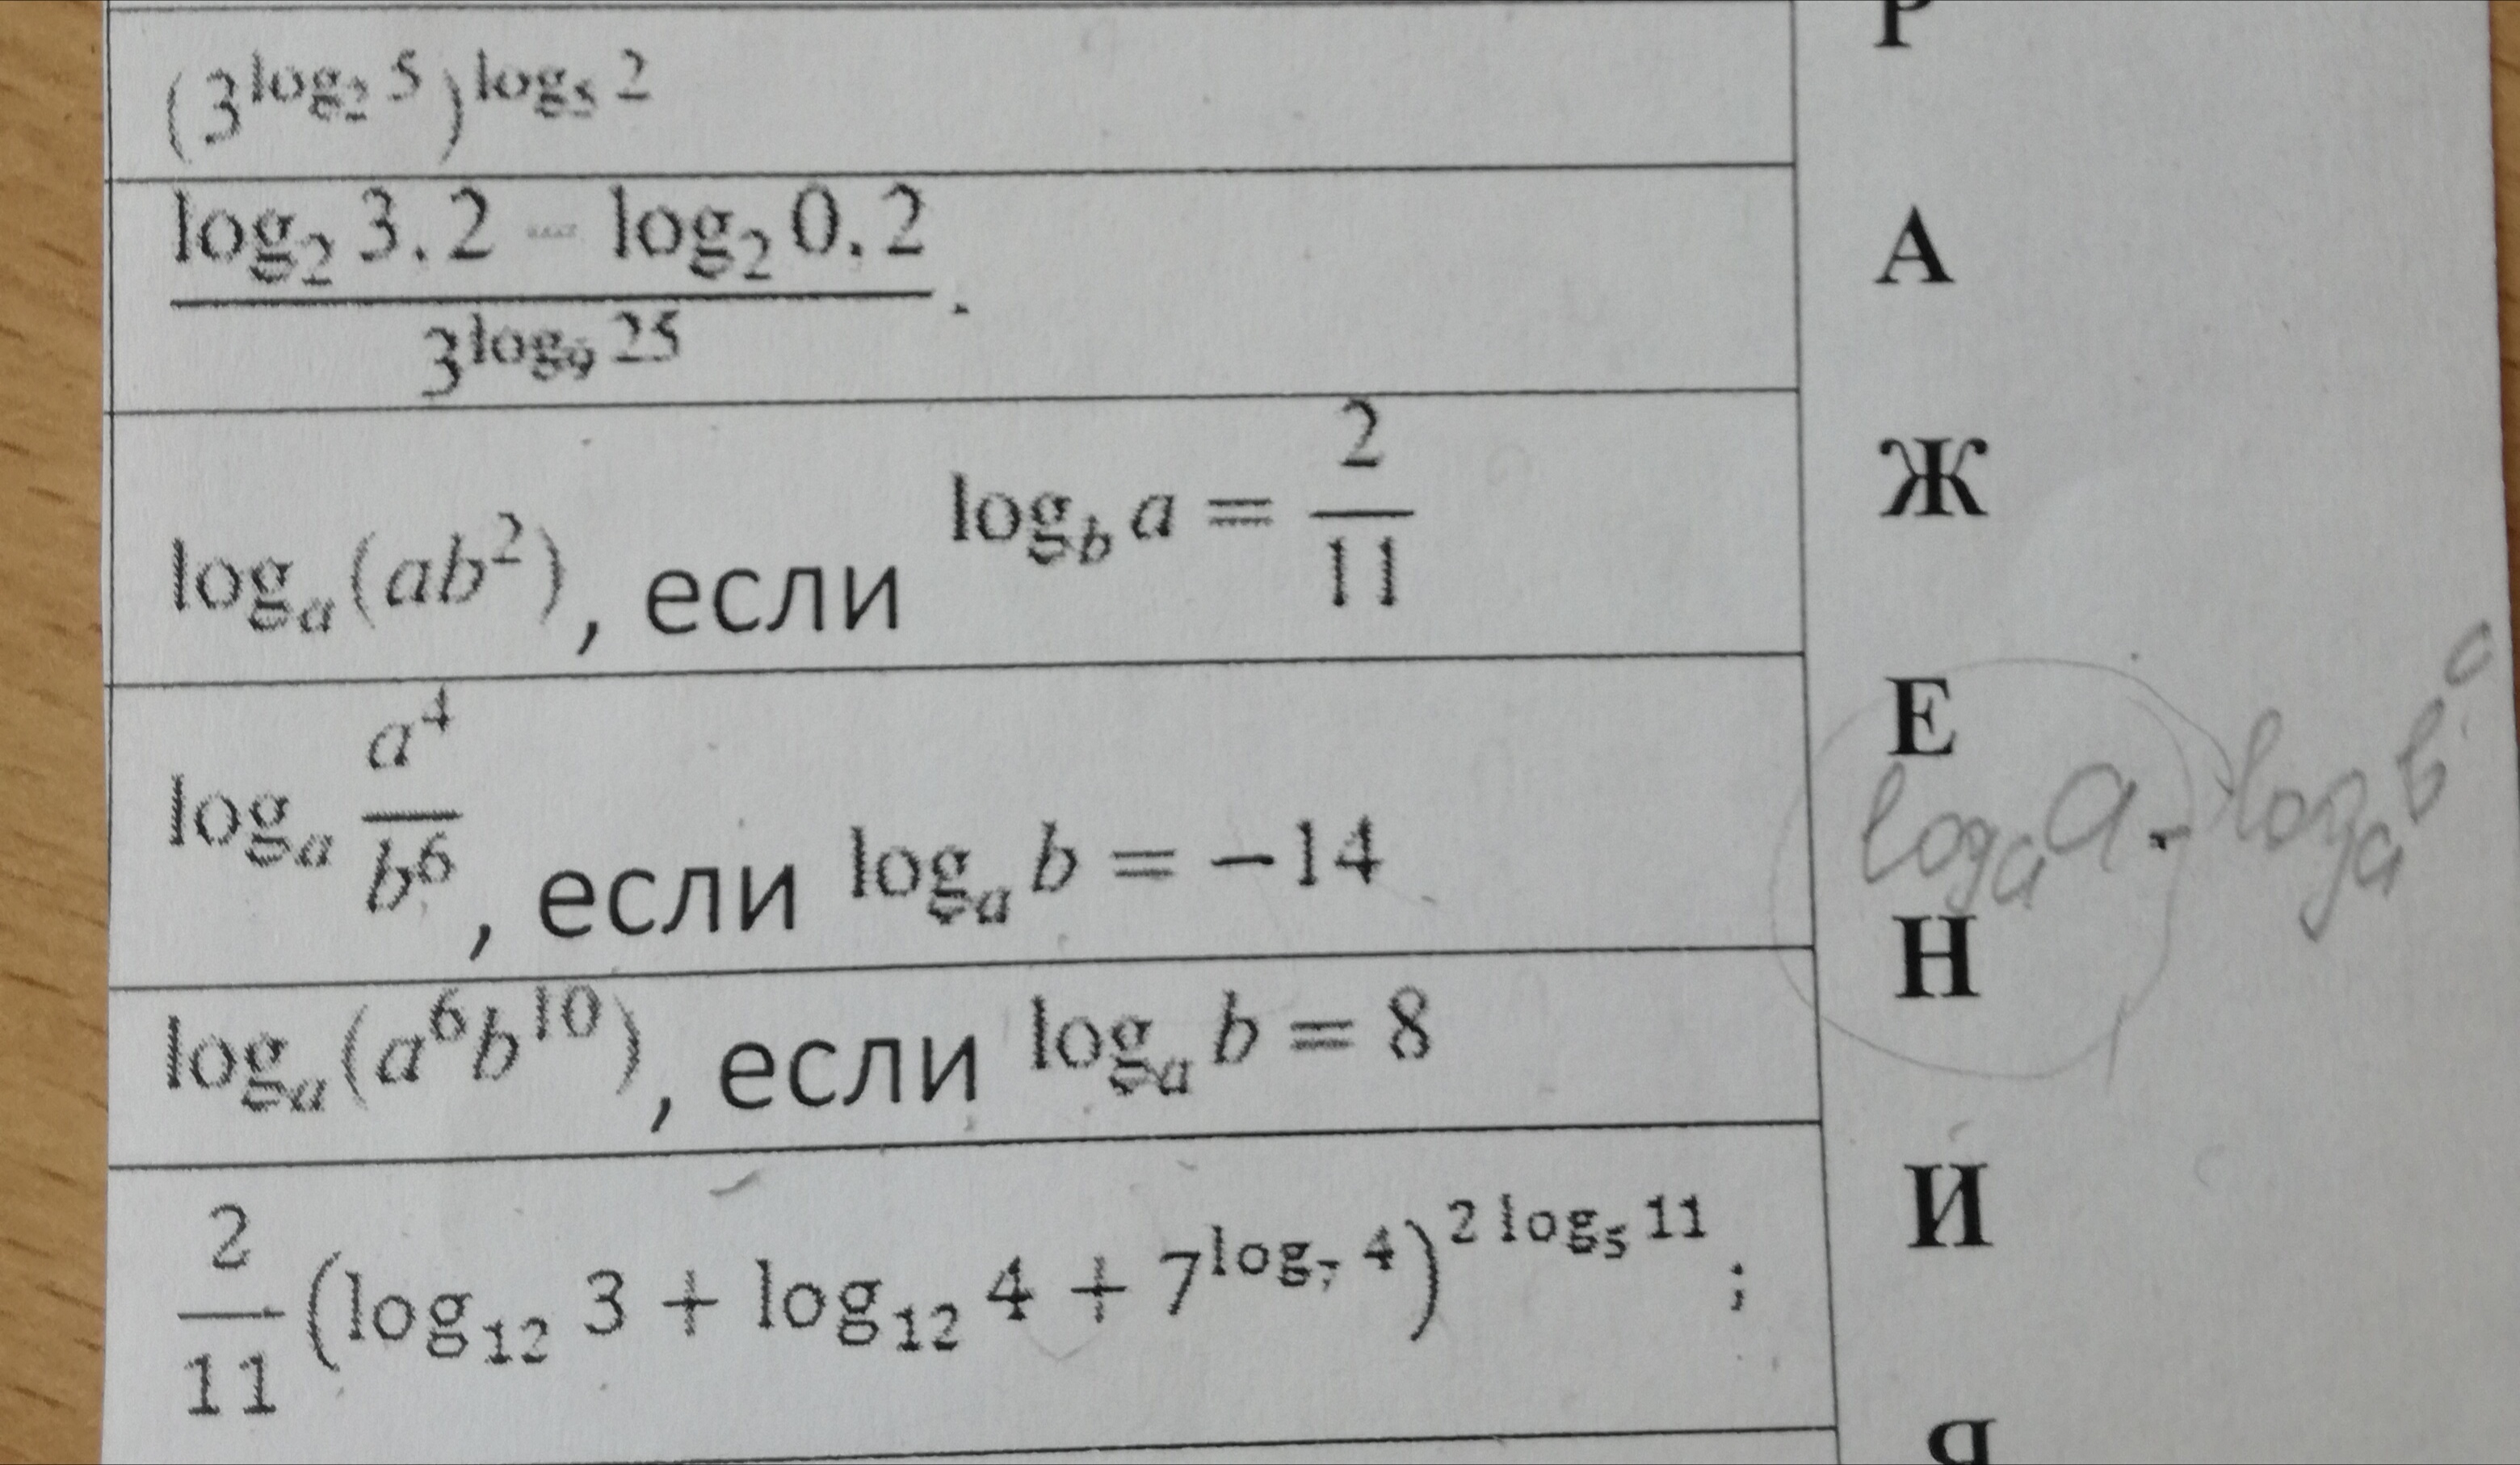 (3^{log_2 5})^{log_5 2}
Р
\frac{log_2 3.2 - log_2 0.2}{3^{log_9 25}}.
А
log_a(ab^2), если log_b a = \frac{2}{11}
Ж
log_a \frac{a^4}{b^6}, если log_a b = -14
Е
log_a a - log_a b^c
Н
log_a(a^6b^{10}), если log_a b = 8
\frac{2}{11}(log_{12} 3 + log_{12} 4 + 7^{log_7 4})^{2 log_5 11};
И
Я